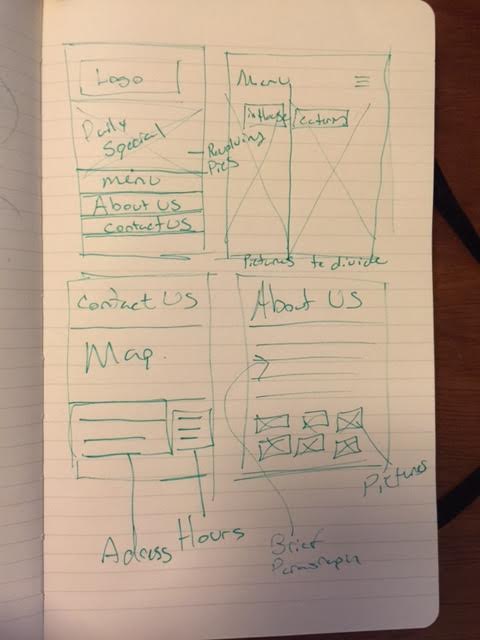 Logo
Daily
Special
Revolving
Pics
menu
About US
contact US
Menu
inHouse
catering
Pictures to divide
Contact US
Map
Adress
Hours
About US
Pictures
Brief
Paragraph